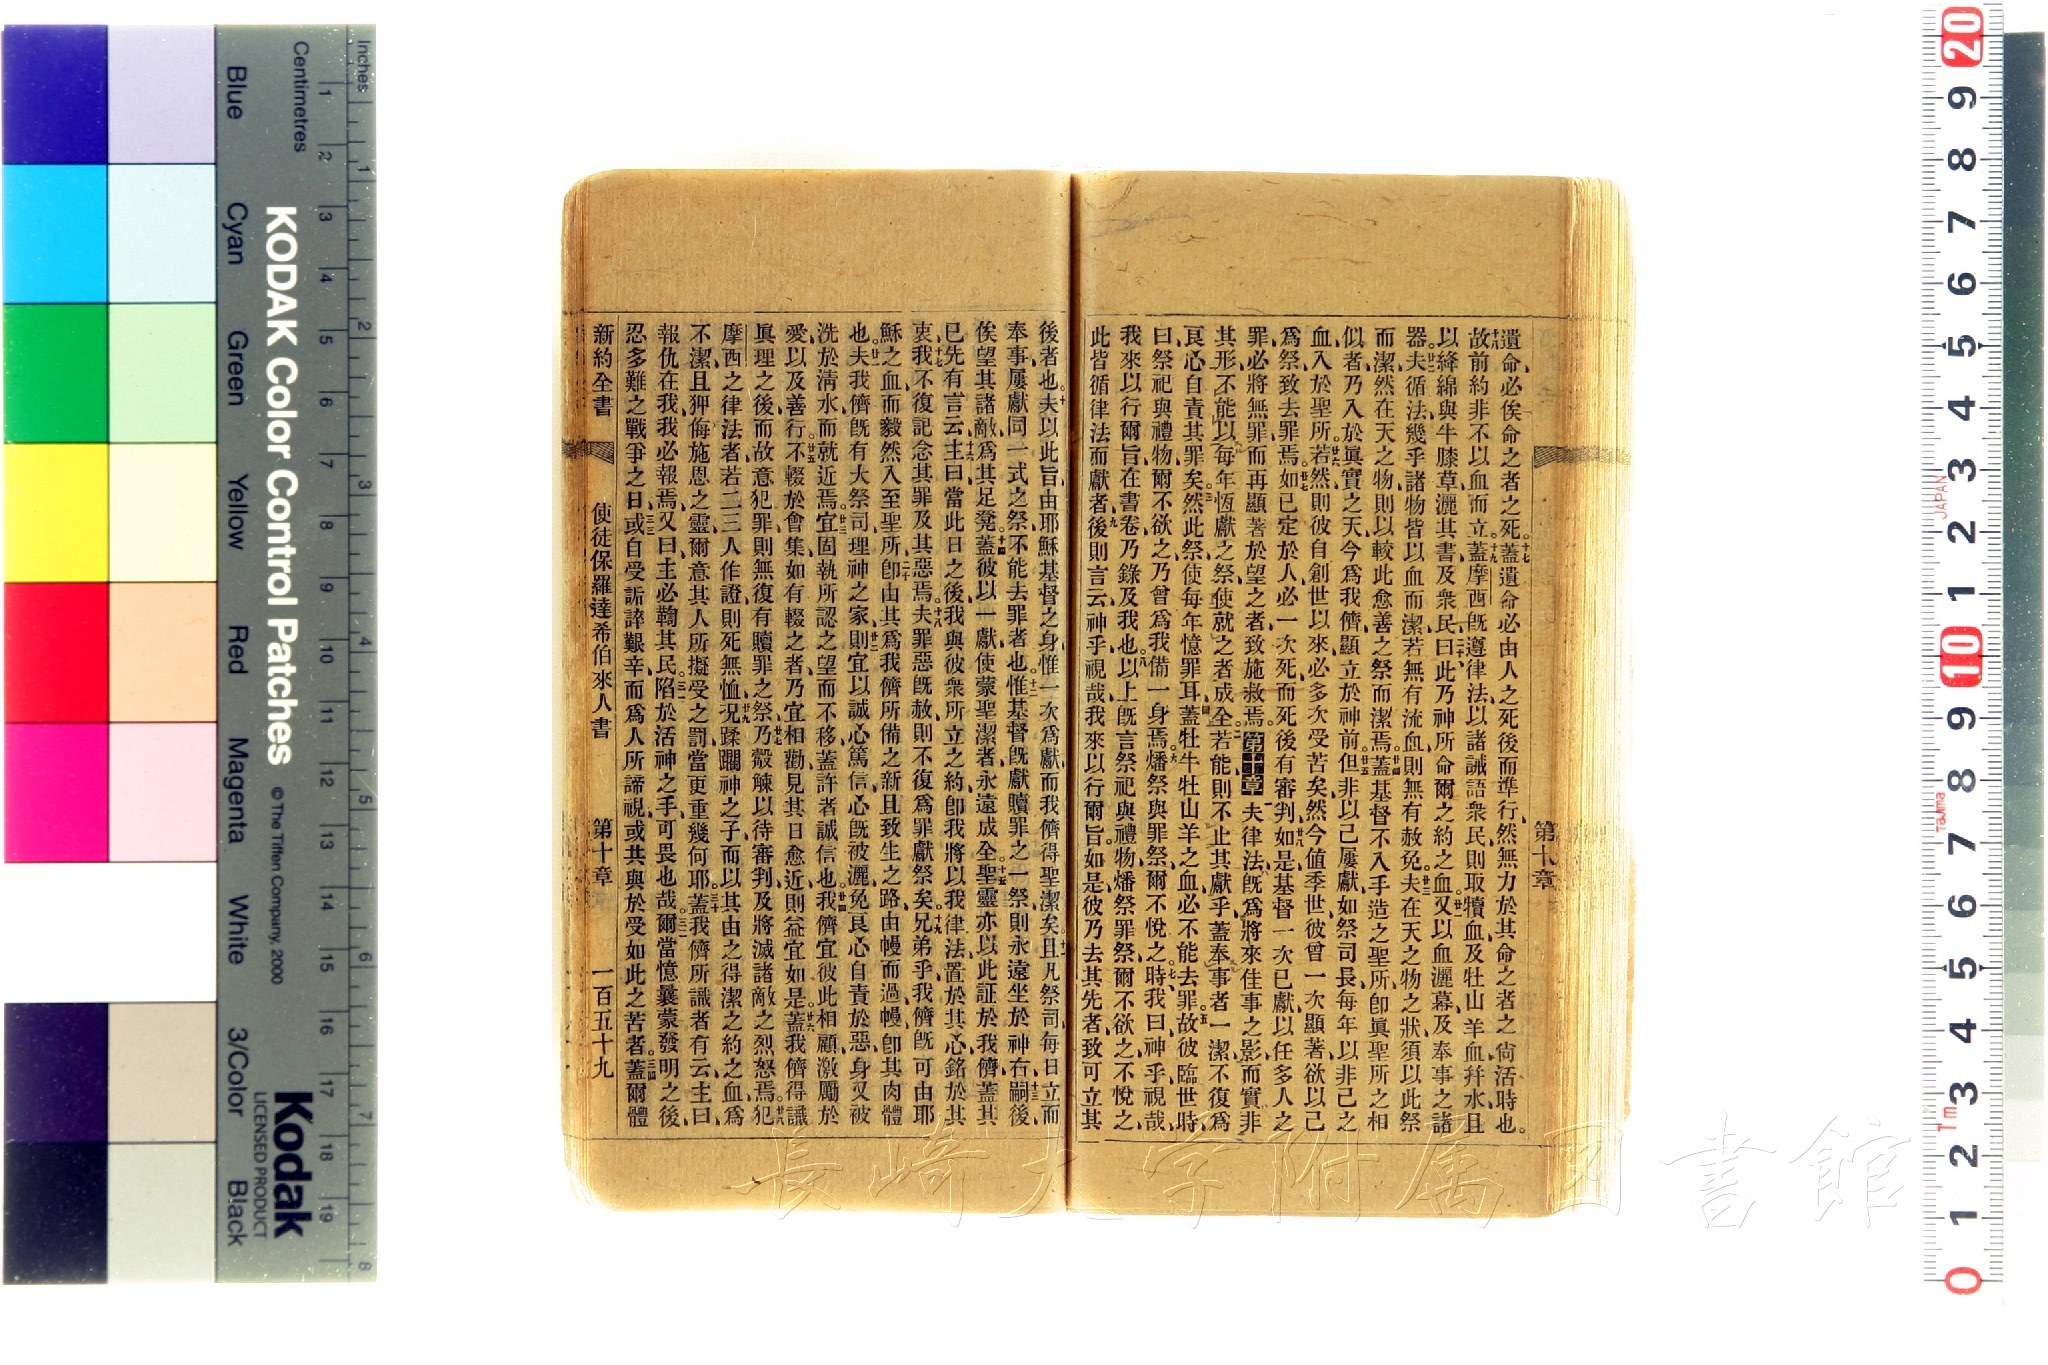 遺命必俟命之者之死、蓋遺命必由人之死後而準行、然無力於其命之者之尙活時也。
故前約非不以血而立、蓋摩西旣遵律法、以諸誡語衆民、則取犢血及牡山羊血、幷水且
以絳綿與牛膝草、灑其書及衆民、曰此乃神所命爾之約之血、又以血灑幕及奉事之諸
器、夫循法、幾乎諸物皆以血而潔、若無有流血、則無有赦免、夫在天之物之狀、須以此祭
而潔、然在天之物、則以較此愈善之祭而潔焉、蓋基督不入手造之聖所、卽眞聖所之相
似者、乃入於眞實之天、今爲我儕顯立於神前、但非以己屢獻、如祭司長、每年以非己之
血入於聖所、若然、則彼自創世以來、必多次受苦矣、然今値季世、彼曾一次顯著、欲以己
爲祭、致去罪焉、如已定於人必一次死、而死後有審判、如是基督一次已獻、以任多人之
罪、必將無罪而再顯著於望之者、致施救焉。第十章 夫律法旣爲將來佳事之影、而實非
其形、不能以每年恆獻之祭、使就之者成全、若能、則不止其獻乎、蓋奉事者一潔、不復爲
良心自責其罪矣、然此祭、使每年憶罪耳、蓋牡牛牡山羊之血、必不能去罪、故彼臨世時、
曰、祭祀與禮物、爾不欲之、乃曾爲我備一身焉、燔祭與罪祭、爾不悅之、時我曰、神乎、視哉、
我來以行爾旨、在書卷、乃錄及我也、以上旣言祭祀與禮物、燔祭罪祭、爾不欲之、不悅之、
此皆循律法而獻者、後則言云、神乎、視哉、我來以行爾旨、如是彼乃去其先者、致可立其
第十章
後者也、夫以此旨、由耶穌基督之身、惟一次爲獻、而我儕得聖潔矣、且凡祭司每日立而
奉事、屢獻同一式之祭、不能去罪者也、惟基督旣獻贖罪之一祭、則永遠坐於神右、嗣後、
俟望其諸敵爲其足凳、蓋彼以一獻、使蒙聖潔者永遠成全、聖靈亦以此証於我儕、蓋其
已先有言云、主曰、當此日之後、我與彼衆所立之約、卽我將以我律法置於其心、銘於其
衷、我不復記念其罪及其惡焉、夫罪惡旣赦、則不復爲罪獻祭矣、兄弟乎、我儕旣可由耶
穌之血、而毅然入至聖所、卽由其爲我儕所備之新且致生之路、由幔而過、幔卽其肉體
也、夫我儕旣有大祭司、理神之家、則宜以誠心篤信、心旣被灑、免良心自責於惡、身又被
洗於清水、而就近焉、宜固執所認之望而不移、蓋許者誠信也、我儕宜彼此相顧、激勵於
愛、以及善行、不輟於會集、如有輟之者、乃宜相勸、見其日愈近、則益宜如是、蓋我儕得識
眞理之後、而故意犯罪、則無復有贖罪之祭、乃觳觫以待審判、及將滅諸敵之烈怒焉、犯
摩西之律法者、若二三人作證、則死無恤、况蹂躙神之子、而以其由之得潔之約之血爲
不潔、且狎侮施恩之靈、爾意其人所擬受之罰、當更重幾何耶、蓋我儕所識者有云、主曰、
報仇在我、我必報焉、又曰、主必鞫其民、陷於活神之手、可畏也哉、爾當憶曩蒙發明之後、
忍多難之戰爭之日、或自受訴誶艱辛、而爲人所諦視、或共與於受如此之苦者、蓋爾體
新約全書 使徒保羅達希伯來人書 第十章 一百五十九
長崎大学附属図書館
KODAK Color Control Patches
© The Tiffen Company, 2000
Kodak
LICENSED PRODUCT
Inches
Centimetres
Blue Cyan Green Yellow Red Magenta White 3/Color Black
1 2 3 4 5 6 7 8 9 10 11 12 13 14 15 16 17 18 19
1 2 3 4 5 6 7 8
20 9 8 7 6 5 4 3 2 1 10 9 8 7 6 5 4 3 2 1 0
JAPAN
Tajima
Tm